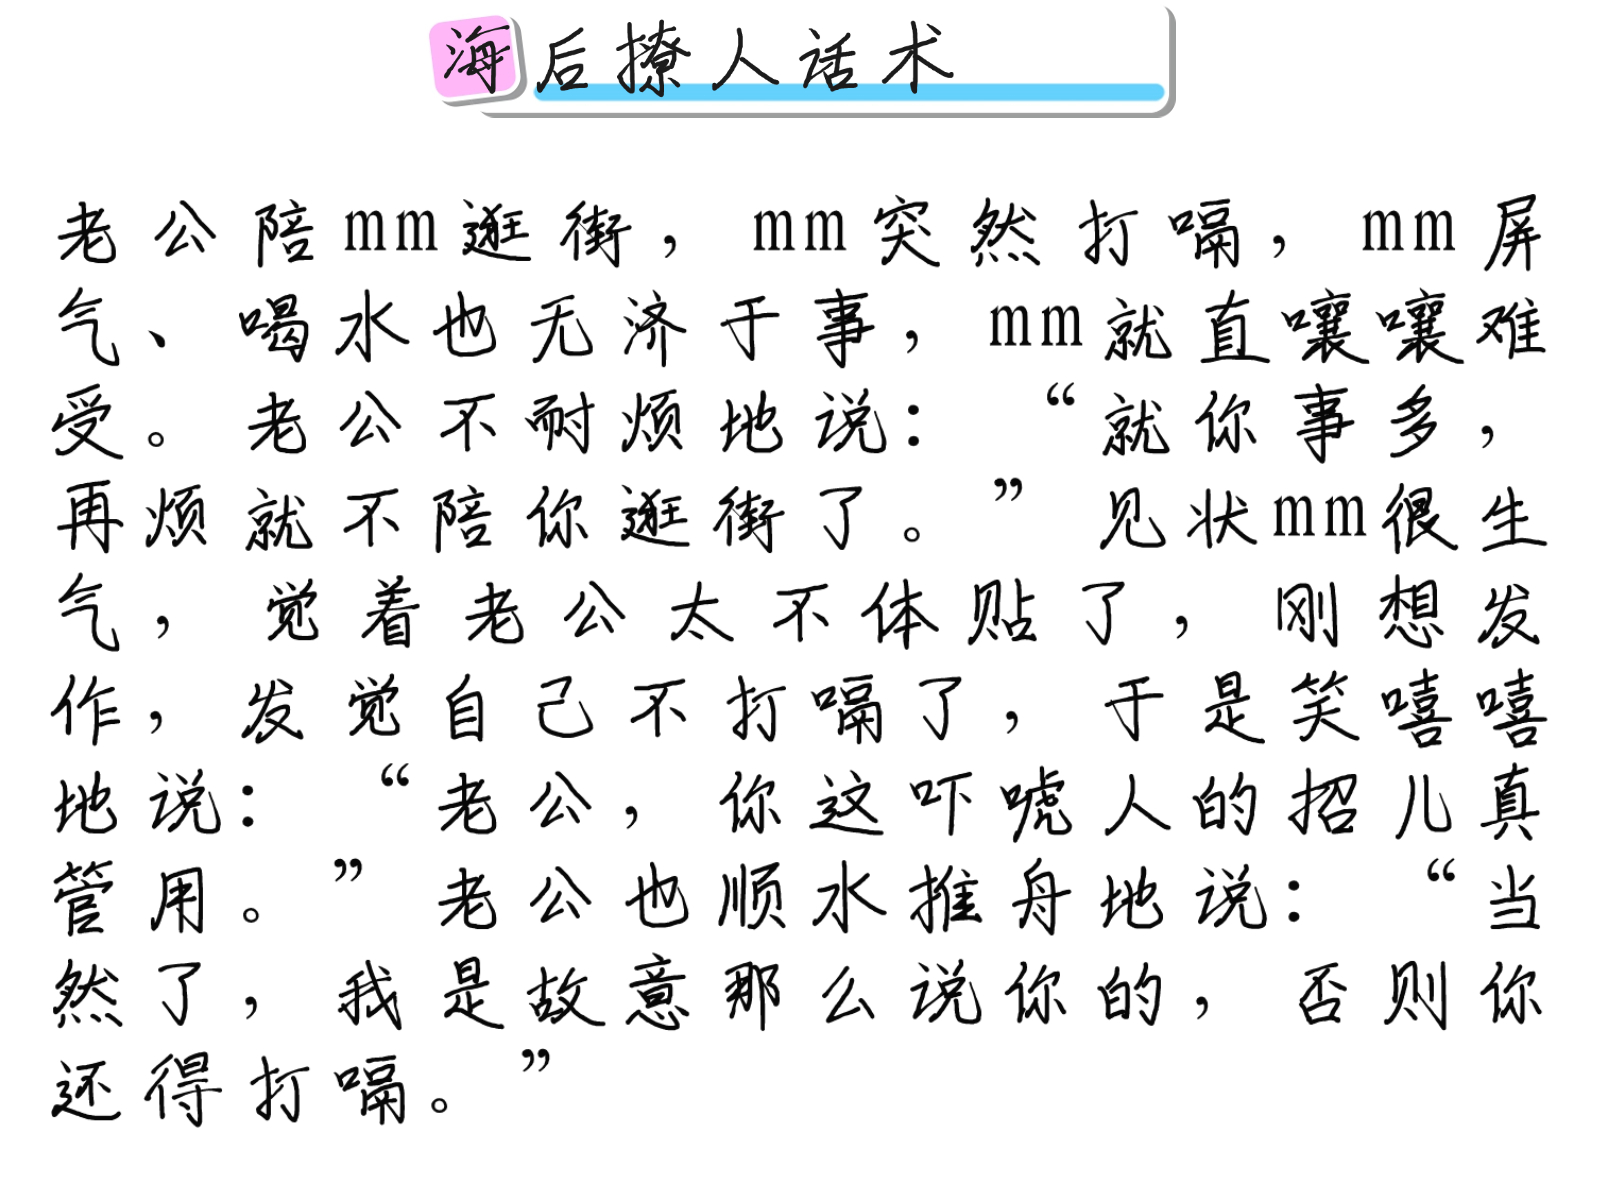 海后撩人话术
老公陪mm逛街，mm突然打嗝，mm屏
气、喝水也无济于事，mm就直嚷嚷难
受。老公不耐烦地说：“就你事多，
再烦就不陪你逛街了。”见状mm很生
气，觉着老公太不体贴了，刚想发
作，发觉自己不打嗝了，于是笑嘻嘻
地说：“老公，你这吓唬人的招儿真
管用。”老公也顺水推舟地说：“当
然了，我是故意那么说你的，否则你
还得打嗝。”